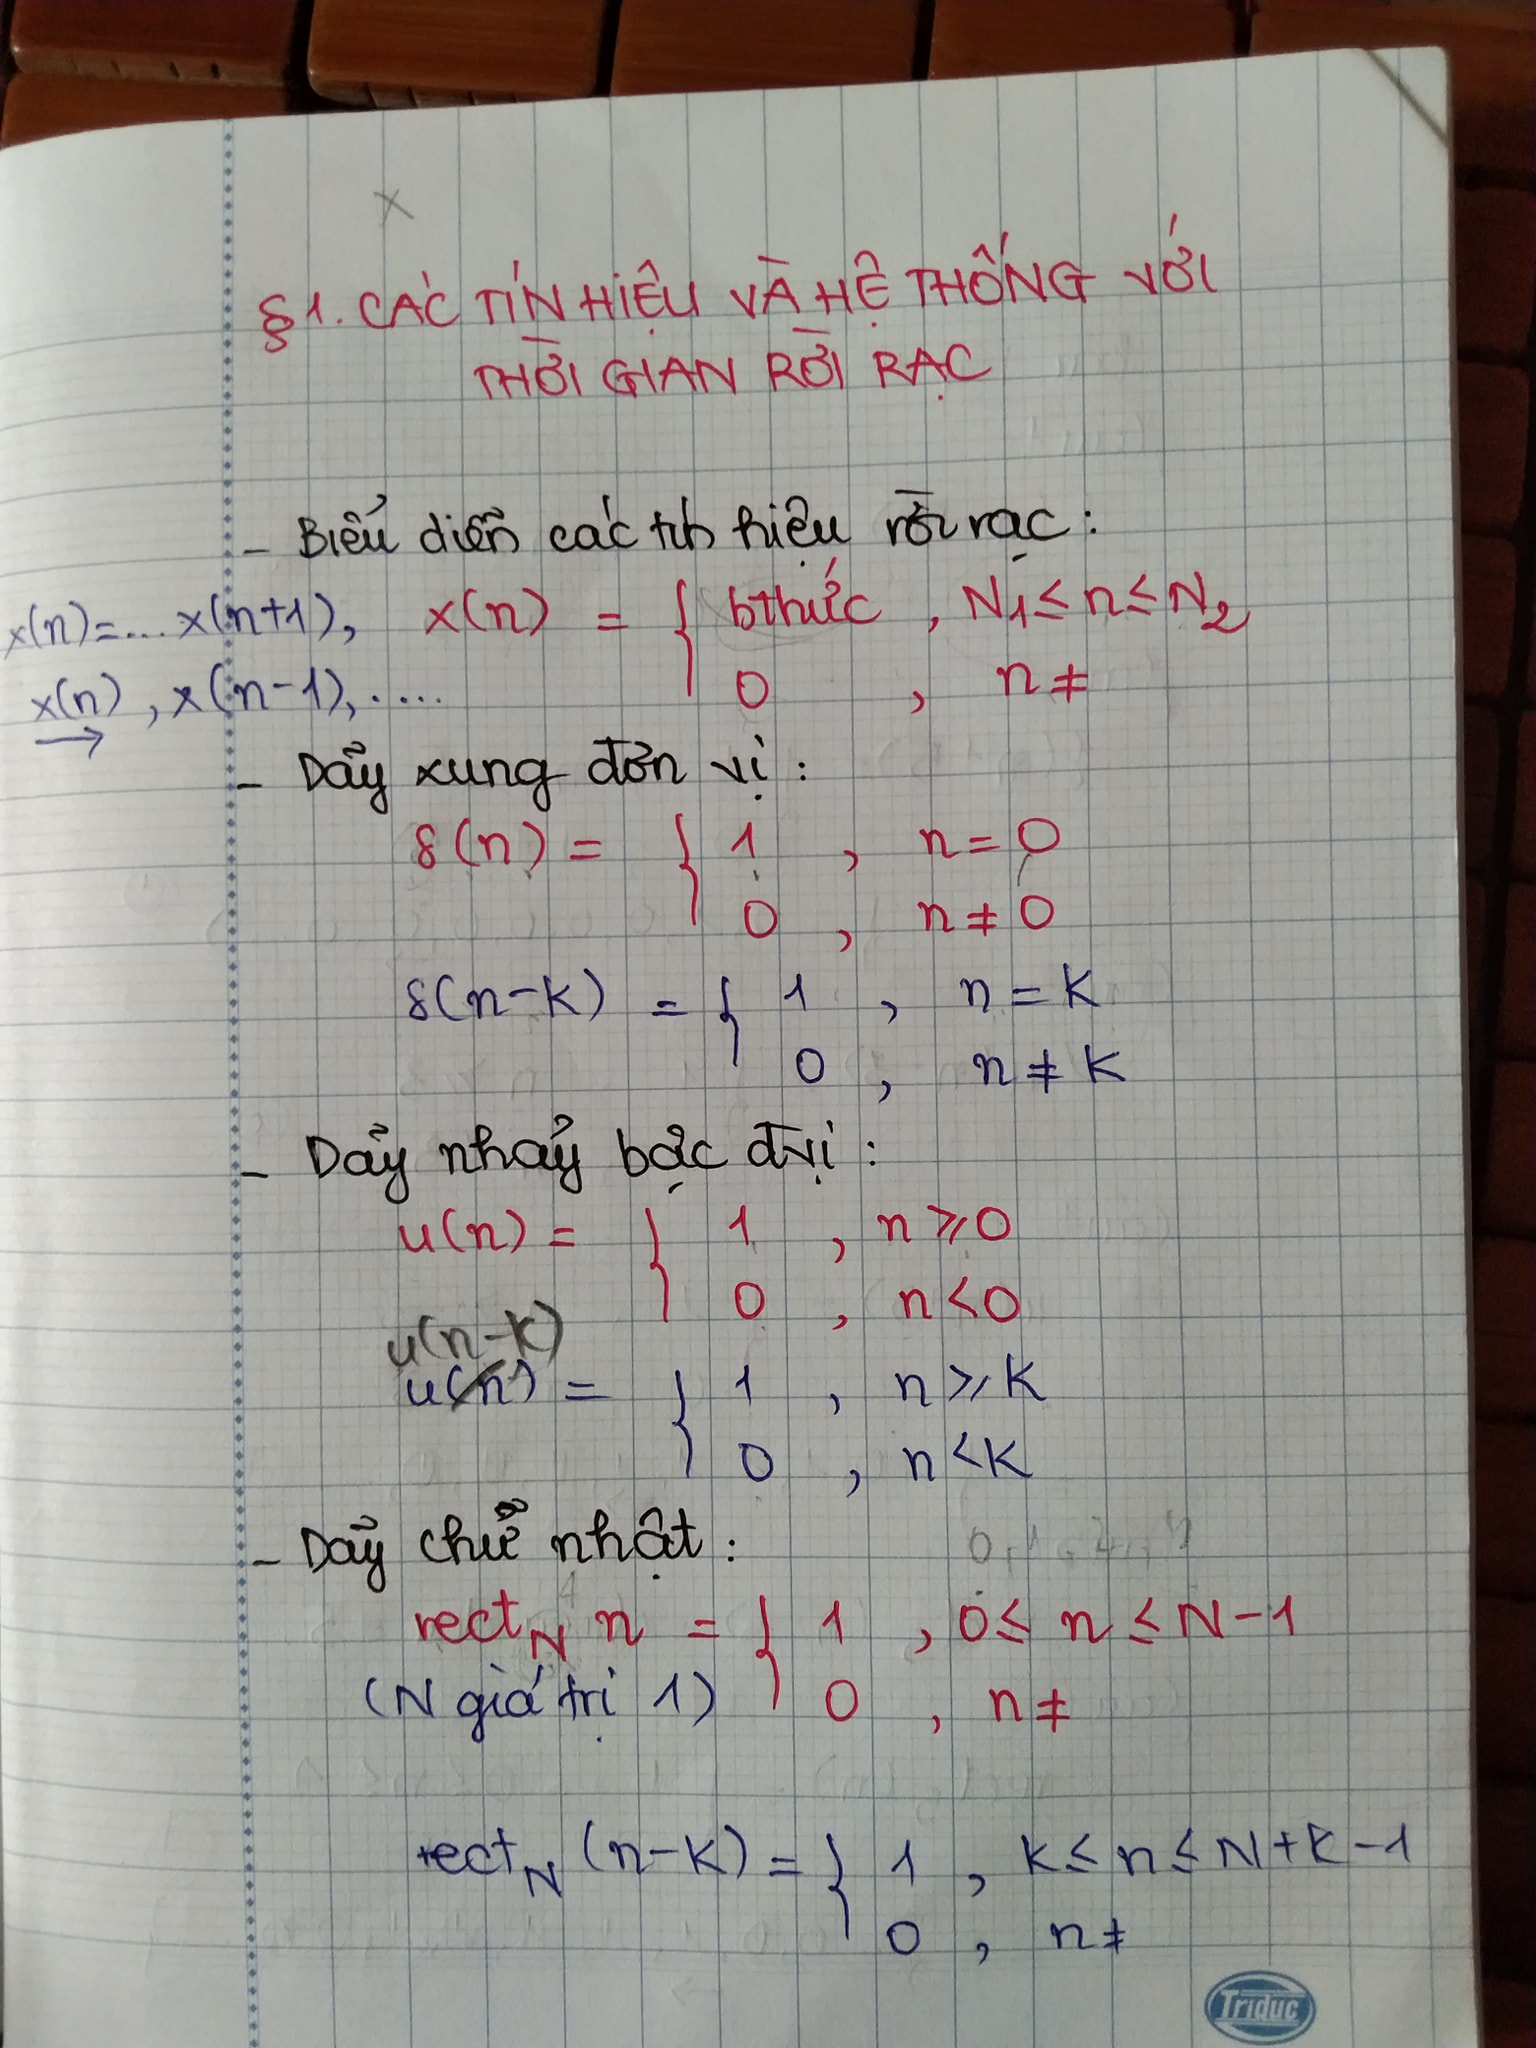 §1. CÁC TÍN HIỆU VÀ HỆ THỐNG VỚI
THỜI GIAN RỜI RẠC
- Biểu diễn các tín hiệu rời rạc:
x(n)=... x(n+1), x(n) = { bthức , N₁ ≤ n ≤ N₂
x(n), x(n-1), .... 0 , n ≠
- Dãy xung đơn vị:
δ(n) = { 1 , n = 0
0 , n ≠ 0
δ(n-k) = { 1 , n = k
0 , n ≠ k
- Dãy nhảy bậc đvị:
u(n) = { 1 , n ≥ 0
0 , n < 0
u(n-k)
u(n) = { 1 , n ≥ k
0 , n < k
- Dãy chữ nhật:
rect_N n = { 1 , 0 ≤ n ≤ N-1
(N giá trị 1) 0 , n ≠
rect_N (n-k) = { 1 , k ≤ n ≤ N+k-1
0 , n ≠
Triduc